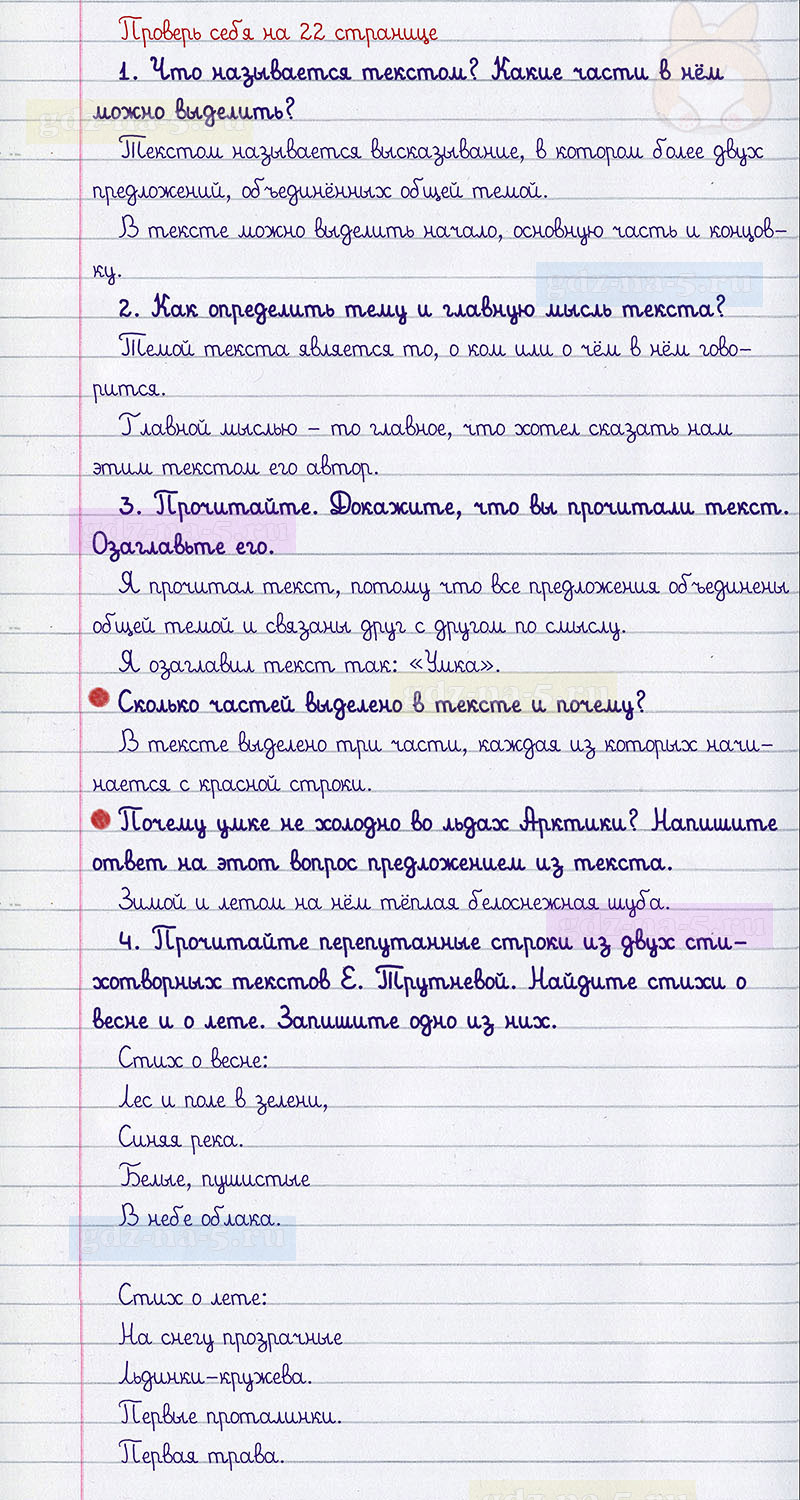 Проверь себя на 22 странице
1. Что называется текстом? Какие части в нём
можно выделить?
gdz-na-5.ru
Текстом называется высказывание, в котором более двух
предложений, объединённых общей темой.
В тексте можно выделить начало, основную часть и концов-
ку.
gdz-na-5.ru
2. Как определить тему и главную мысль текста?
Темой текста является то, о ком или о чём в нём гово-
рится.
Главной мыслью – то главное, что хотел сказать нам
этим текстом его автор.
3. Прочитайте. Докажите, что вы прочитали текст.
gdz-na-5.ru
Озаглавьте его.
Я прочитал текст, потому что все предложения объединены
общей темой и связаны друг с другом по смыслу.
Я озаглавил текст так: «Умка».
gdz-na-5.ru
Сколько частей выделено в тексте и почему?
В тексте выделено три части, каждая из которых начи-
нается с красной строки.
Почему умке не холодно во льдах Арктики? Напишите
ответ на этот вопрос предложением из текста.
Зимой и летом на нём тёплая белоснежная шуба.
gdz-na-5.ru
4. Прочитайте перепутанные строки из двух сти-
хотворных текстов Е. Трутневой. Найдите стихи о
весне и о лете. Запишите одно из них.
Стих о весне:
Лес и поле в зелени,
Синяя река.
Белые, пушистые
В небе облака.
gdz-na-5.ru
Стих о лете:
На снегу прозрачные
Льдинки-кружева.
Первые проталинки.
Первая трава.
gdz-na-5.ru